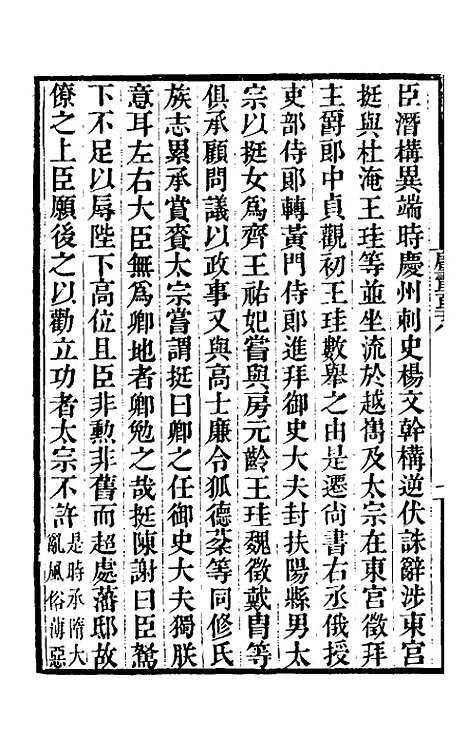 臣潛構異端時慶州刺史楊文幹構逆伏誅辭涉東宮
挺與杜淹王珪等並坐流於越嶲及太宗在東宮徵拜
主爵郎中貞觀初王珪數舉之由是遷尚書右丞俄授
吏部侍郎轉黃門侍郎進拜御史大夫封扶陽縣男太
宗以挺女爲齊王祐妃嘗與房元齡王珪魏徵戴胄等
俱承顧問議以政事又與高士廉令狐德棻等同修氏
族志累承賞賚太宗嘗謂挺曰卿之任御史大夫獨朕
意耳左右大臣無爲卿地者卿勉之哉挺陳謝曰臣駑
下不足以辱陛下高位且臣非勲非舊而超處藩邸故
僚之上臣願後之以勸立功者太宗不許是時承隋大
亂風俗薄惡